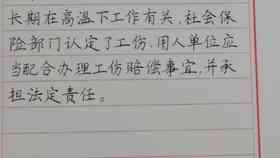 长期在高温下工作有关,社会保
险部门认定了工伤.用人单位应
当配合办理工伤赔偿事宜,并承
担法定责任。